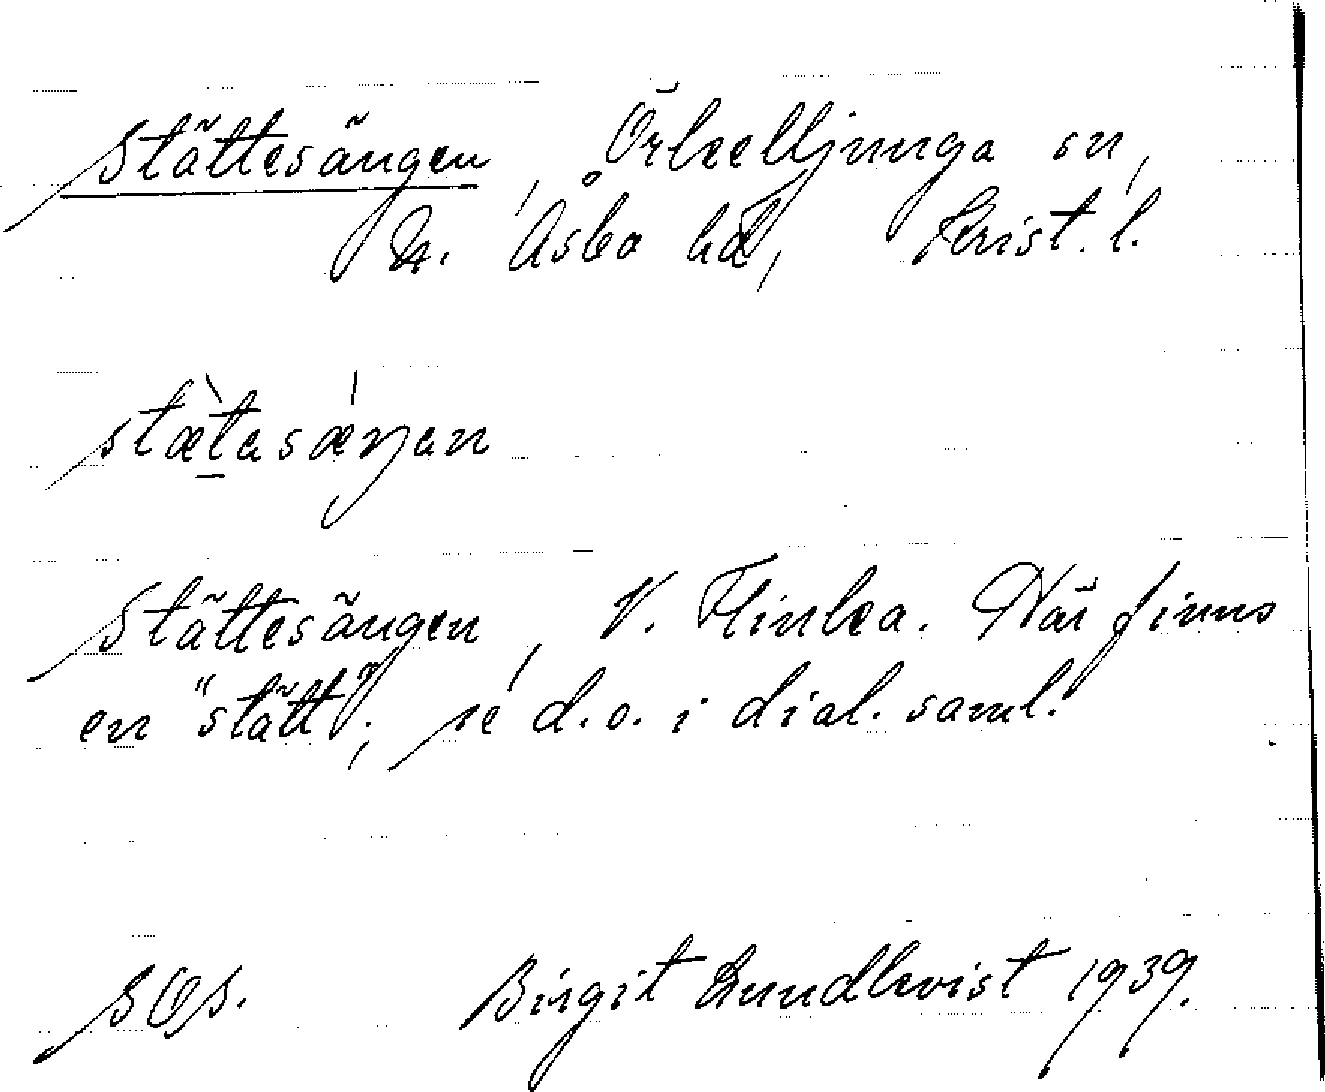 Stättesängen, Örkelljunga sn,
N. Åsbo hd, Krist. l.
stætasæŋan
Stättesängen, V. Flinka. Där finns
en "stätt"; se d.o. i dial. saml.
SOS. Birgit Lundkvist 1939.